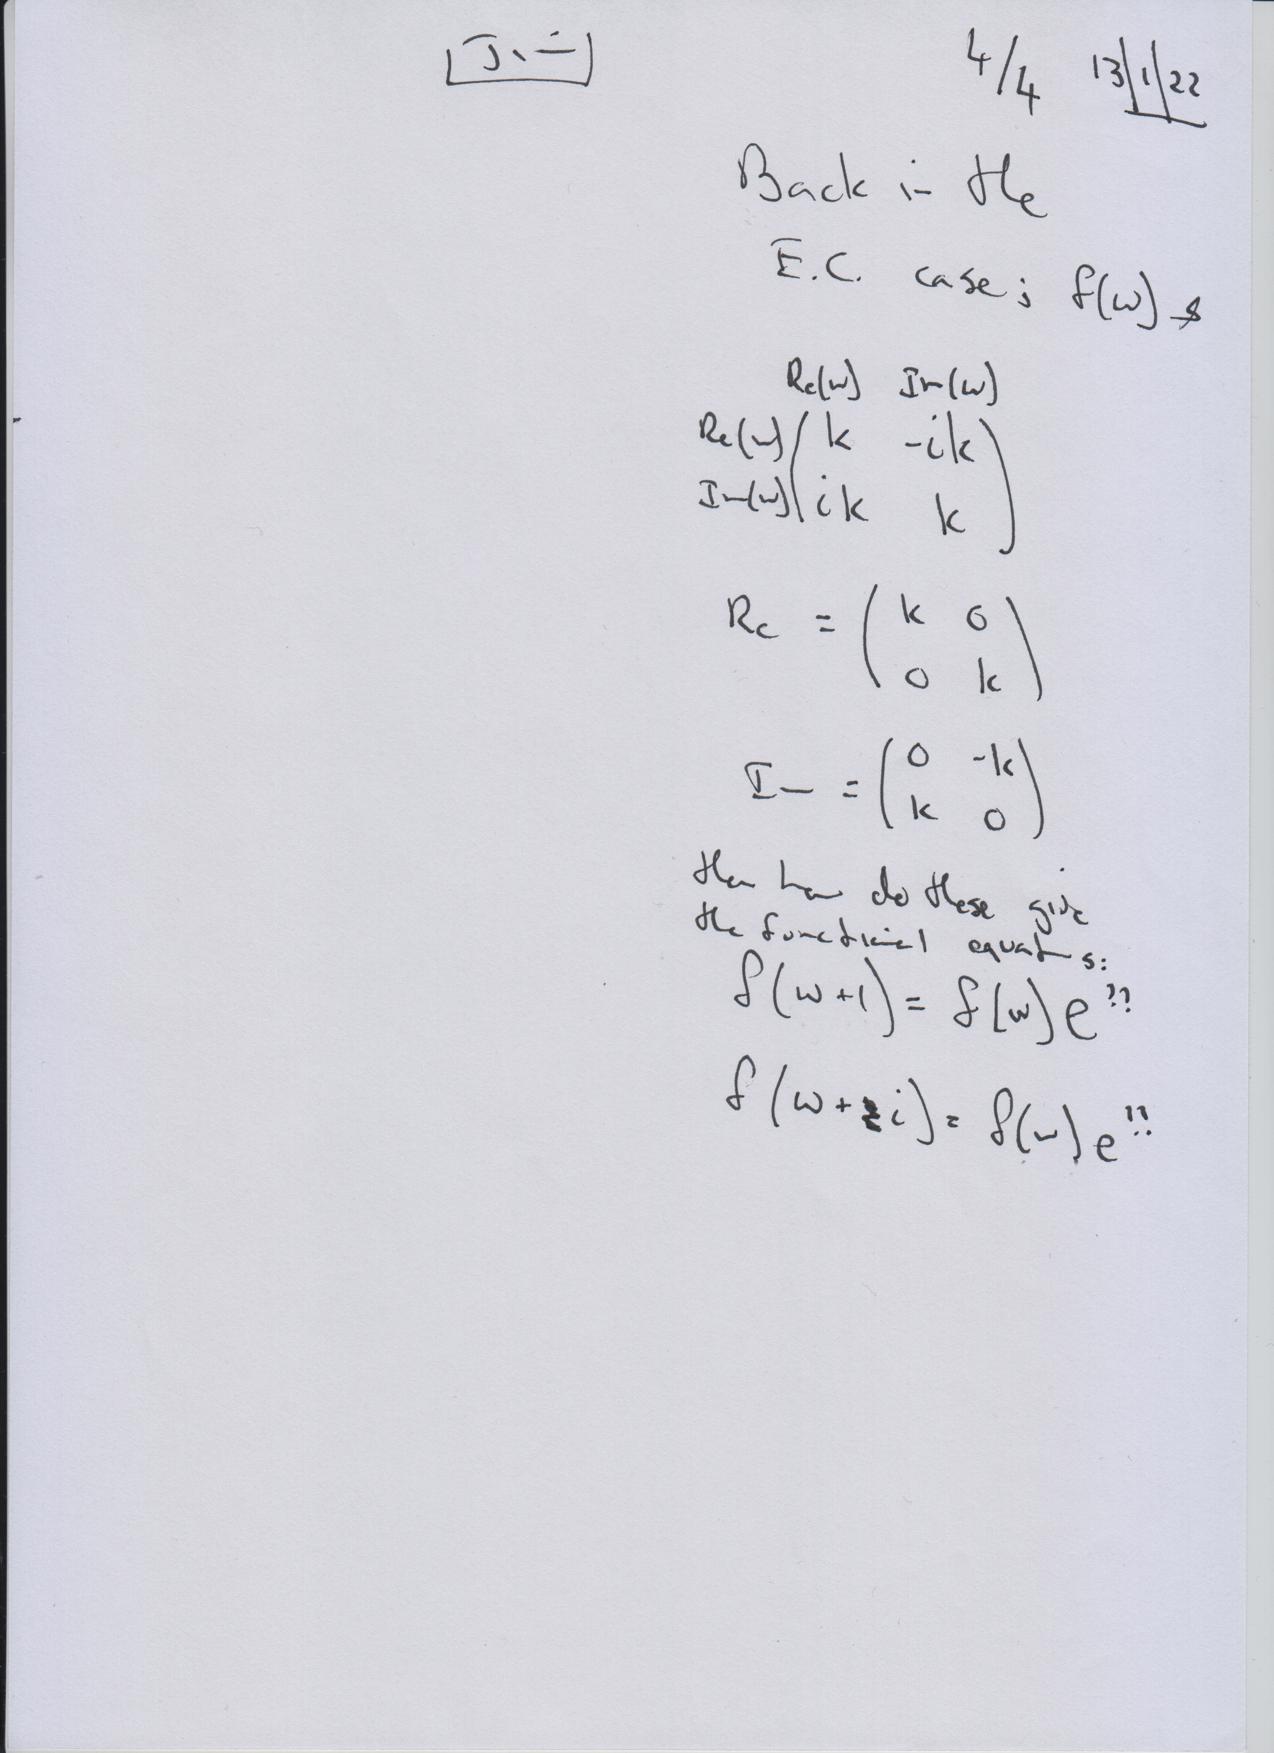 4/4 13/1/22
Back in the
E.C. case; f(w)
Re(w) Im(w)
Re(w) ( k -ik )
Im(w) ( ik k )
Re = ( k 0
0 k )
Im = ( 0 -k
k 0 )
then how do these give
the functional equations:
f(w+1) = f(w) e^??
f(w+i) = f(w) e^??